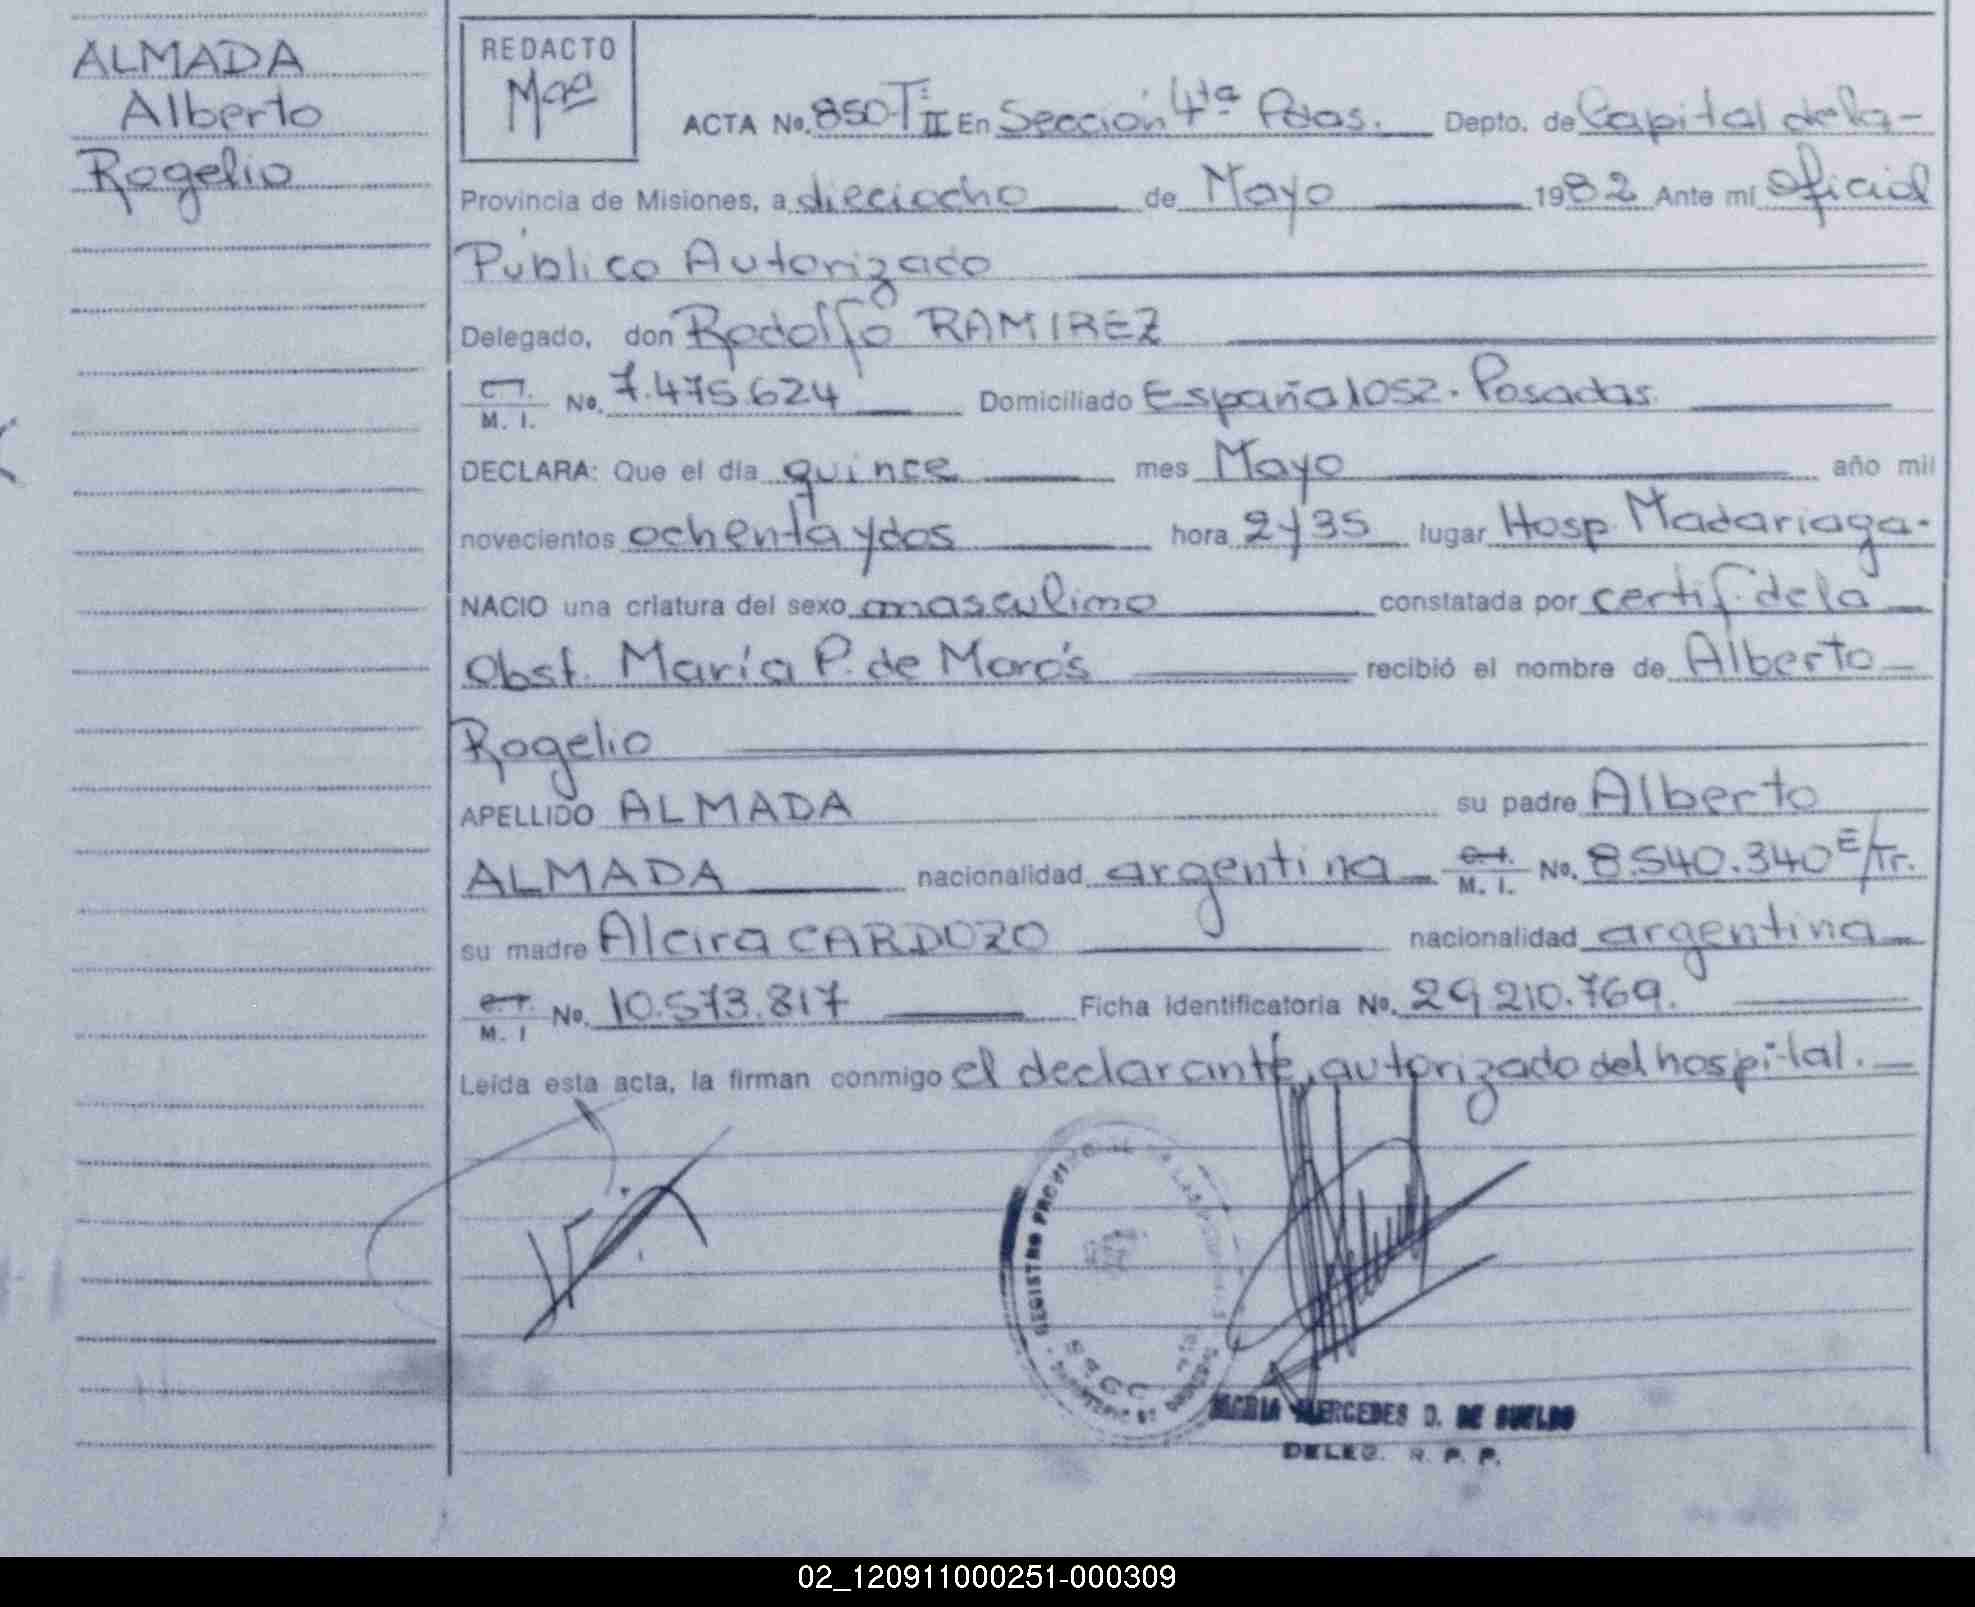 ALMADA
Alberto
Rogelio
REDACTO
Mªª
ACTA No. 850-Tº II En Sección 4ta Pdas. Depto. de Capital de la-
Provincia de Misiones, a dieciocho de Mayo 1982 Ante mí Oficial
Público Autorizado
Delegado, don Rodolfo RAMIREZ
M. I. No. 7.475.624 Domiciliado España 1052. Posadas.
DECLARA: Que el día quince mes Mayo año mil
novecientos ochenta y dos hora 2y35 lugar Hosp. Madariaga.
NACIO una criatura del sexo masculino constatada por certif. de la
Obst. María P. de Morós recibió el nombre de Alberto
Rogelio
APELLIDO ALMADA su padre Alberto
ALMADA nacionalidad argentina C.I. M. I. No. 8.540.340 E/Tr.
su madre Alcira CARDOZO nacionalidad argentina
C.I. M. I No. 10.573.817 Ficha identificatoria No. 29.210.769.
Leída esta acta, la firman conmigo el declarante, autorizado del hospital.
REGISTRO
MARIA MERCEDES D. DE SUELDO
DELEG. R. P. P.
02_120911000251-000309